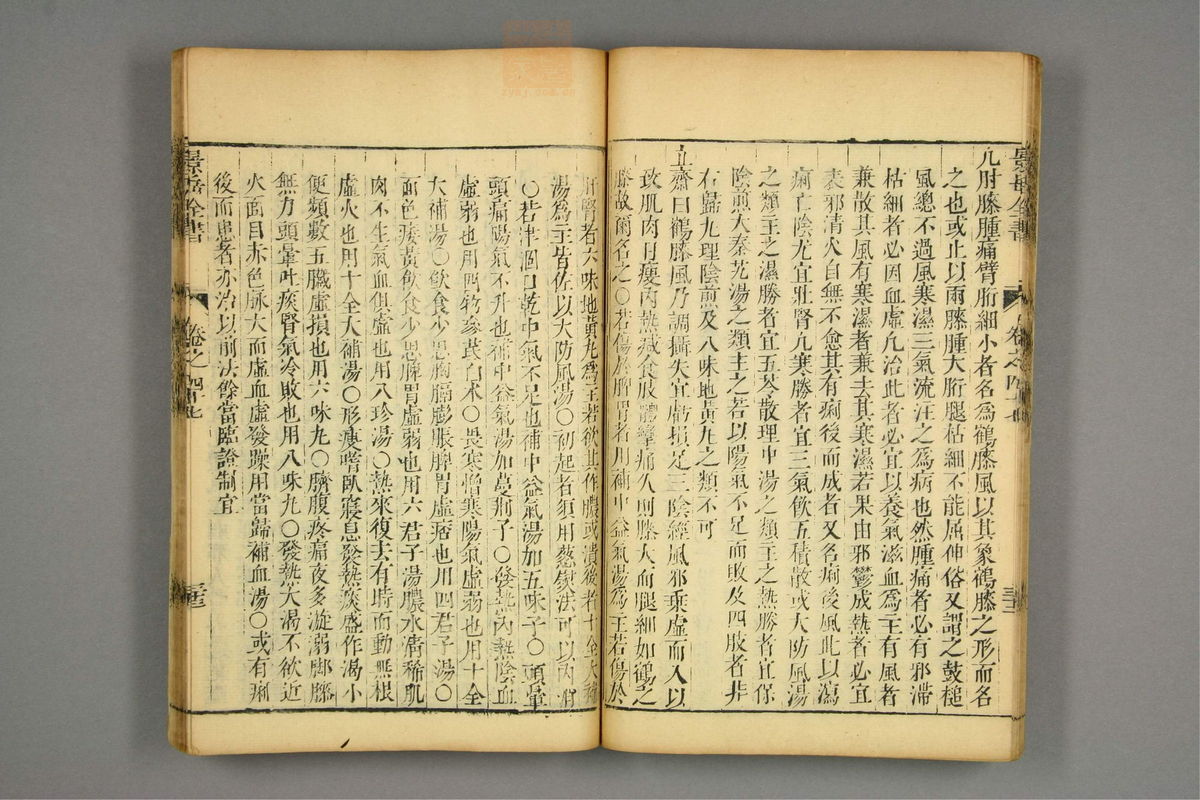 凡肘膝腫痛臂䯒細小者名為鶴膝風以其象鶴膝之形而名
之也或止以兩膝腫大䯒腿枯細不能屈伸俗又謂之鼓槌
風總不過風寒濕三氣流注之為病也然腫痛者必有邪滯
枯細者必因血虛凡治此者必宜以養氣滋血為主有風者
兼散其風有寒濕者兼去其寒濕若果由邪鬱成熱者必宜
表邪清火自無不愈其有痢後而成者又名痢後風此以瀉
痢亡陰尤宜壯腎凡寒勝者宜三氣飲五積散或大防風湯
之類主之濕勝者宜五苓散理中湯之類主之熱勝者宜保
陰煎大秦艽湯之類主之若以陽氣不足而敗及四肢者非
右歸丸理陰煎及八味地黃丸之類不可
立齋曰鶴膝風乃調攝失宜虧損足三陰經風邪乘虛而入以
致肌肉日瘦內熱減食肢體攣痛久則膝大而腿細如鶴之
膝故爾名之○若傷於脾胃者用補中益氣湯為主若傷於
肝腎者六味地黃丸為主若欲其作膿或潰後者十全大補
湯為主皆佐以大防風湯○初起者須用葱熨法可以內消
○若津涸口乾中氣不足也補中益氣湯加五味子○頭暈
頭痛陽氣不升也補中益氣湯加蔓荊子○發熱內熱陰血
虛弱也用四物參芪白朮○畏寒憎寒陽氣虛弱也用十全
大補湯○飲食少思胸膈膨脹脾胃虛痞也用四君子湯○
面色痿黃飲食少思脾胃虛弱也用六君子湯膿水清稀肌
肉不生氣血俱虛也用八珍湯○熱來復去有時而動無根
虛火也用十全大補湯○形瘦嗜臥寢息發熱痰盛作渴小
便頻數五臟虛損也用六味丸○臍腹疼痛夜多漩溺脚膝
無力頭暈吐痰腎氣冷敗也用八味丸○發熱大渴不欲近
火面目赤色脉大而虛血虛發躁用當歸補血湯○或有痢
後而患者亦治以前法餘當臨證制宜
景岳全書
卷之四十七
景岳全書
卷之四十七